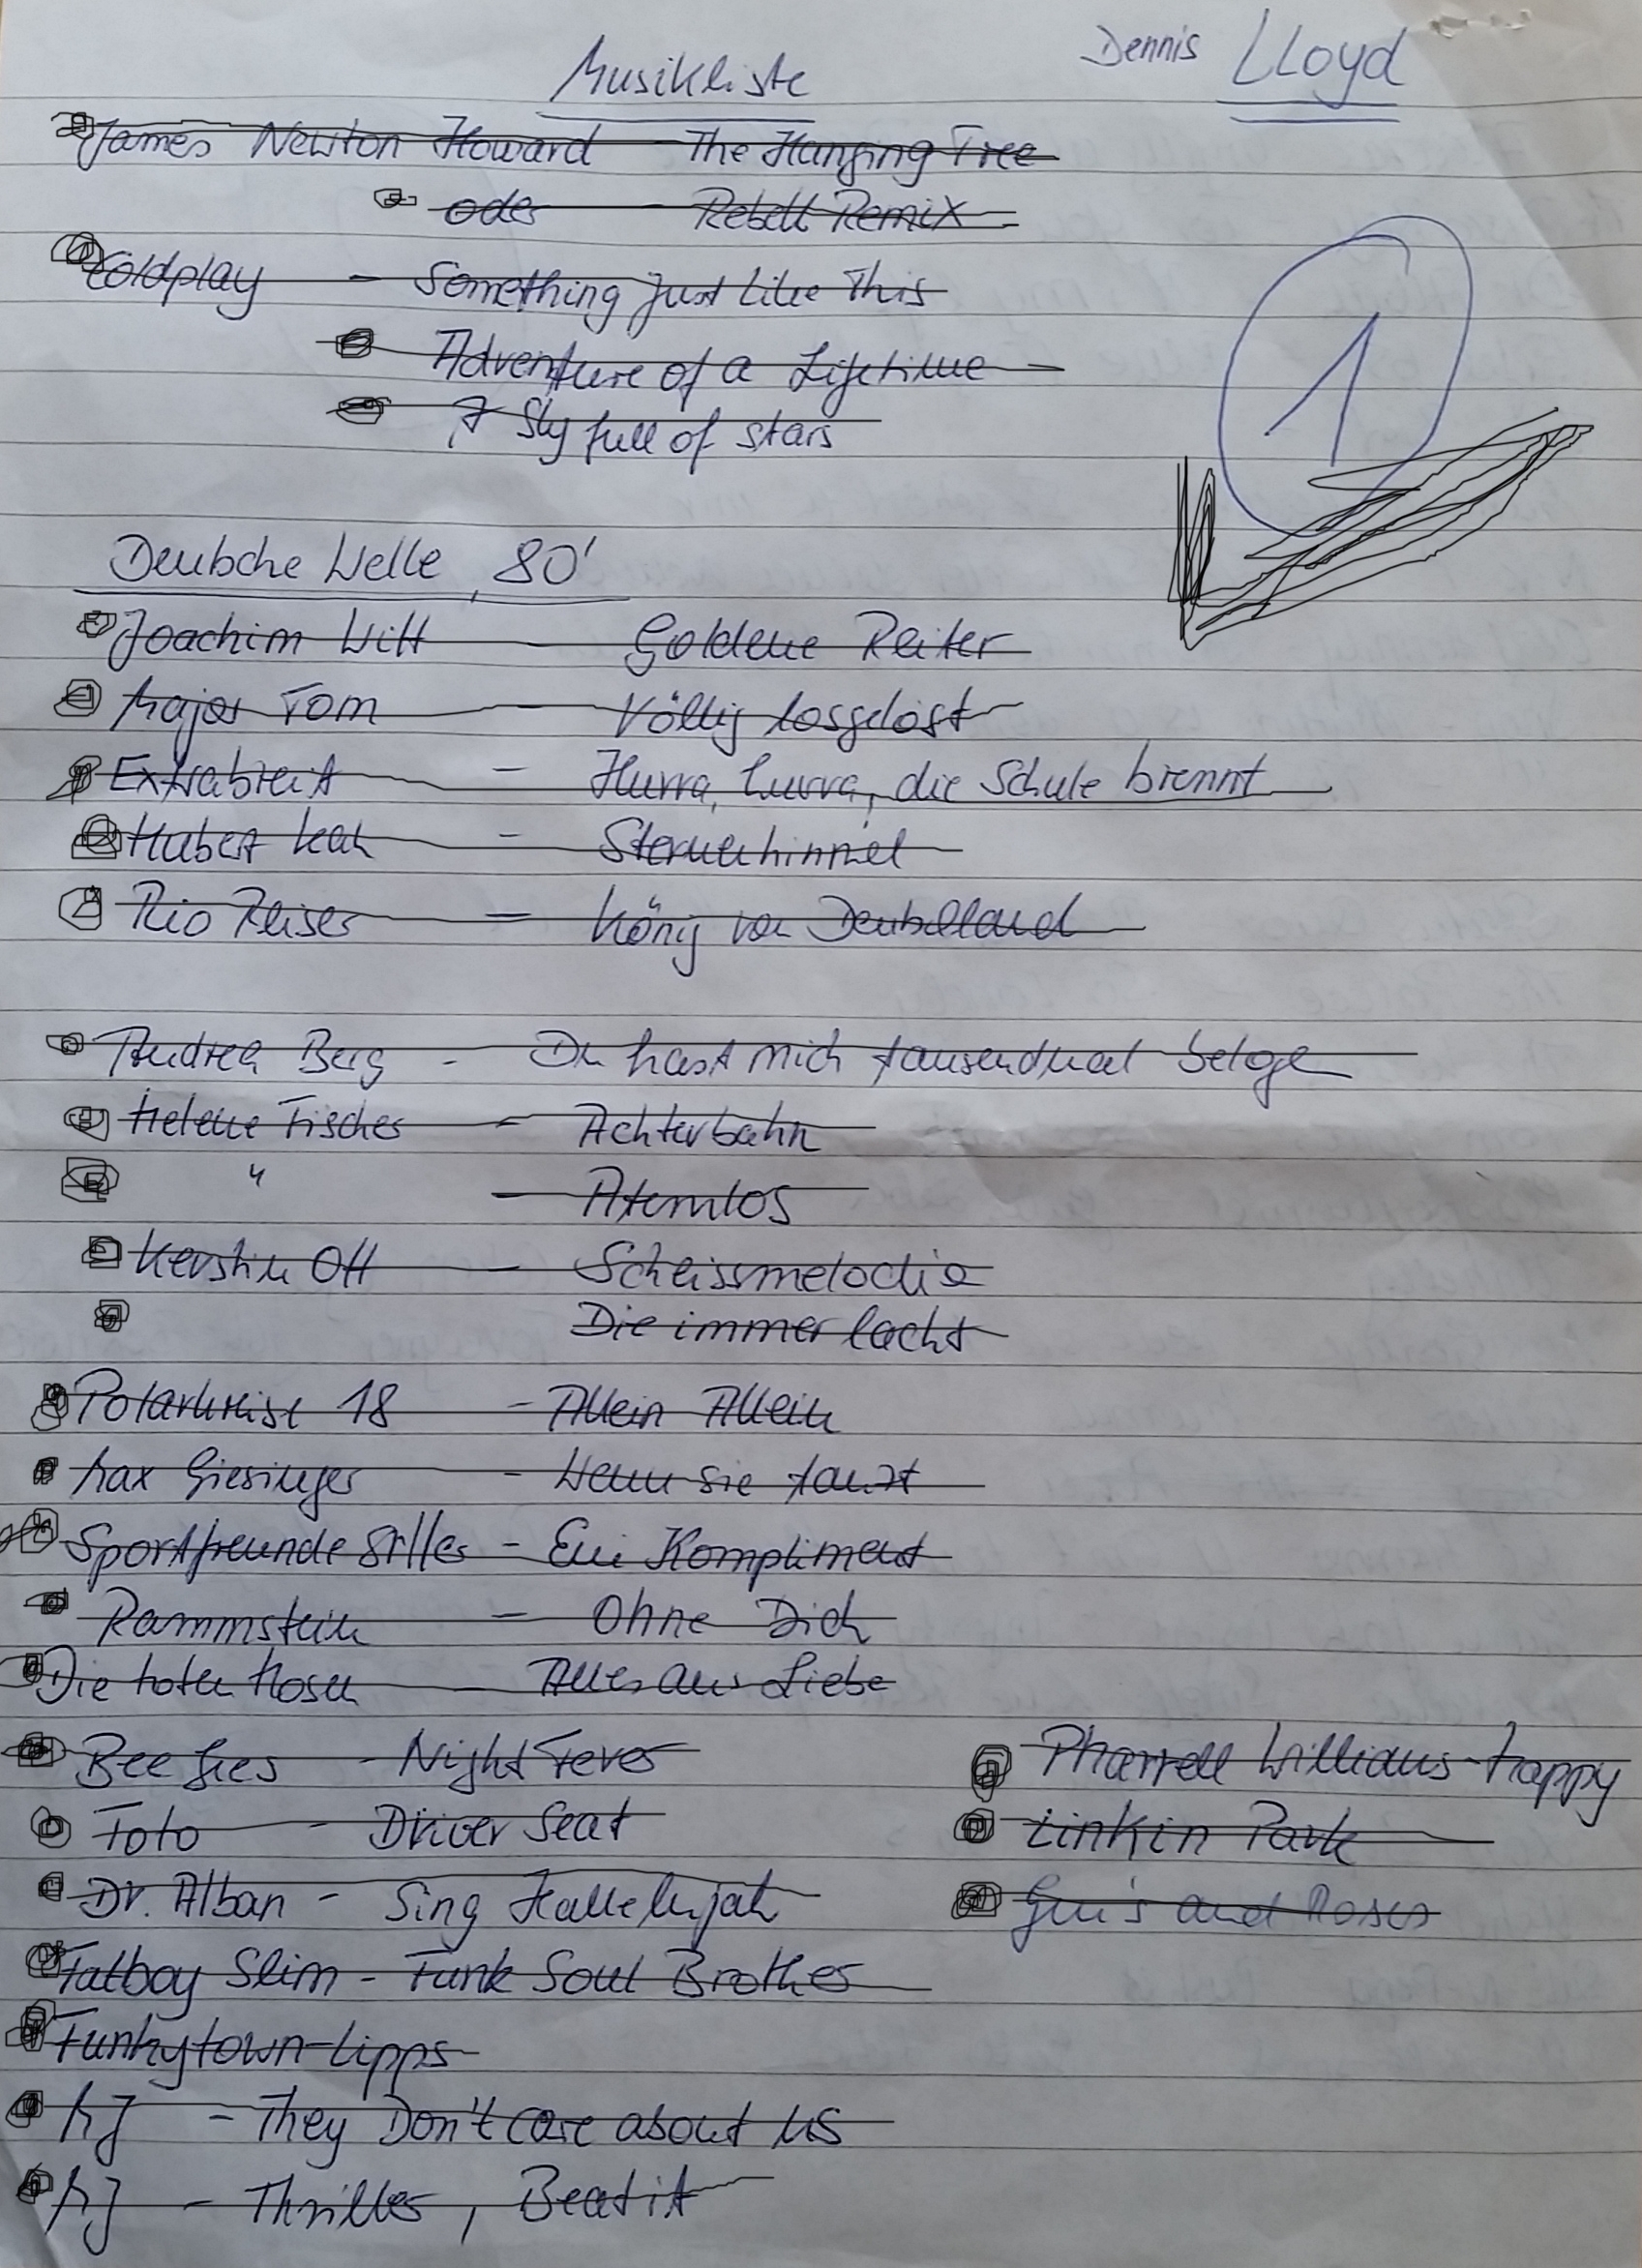 Musikliste
Dennis LLoyd
James Newton Howard - The Hanging Tree
oder - Rebell Remix
Coldplay - Something Just Like This
Adventure of a Lifetime
A Sky full of stars
1
Deutsche Welle, 80'
Joachim Witt - Goldene Reiter
Major Tom - Völlig losgelöst
Extrabreit - Hurra, hurra, die Schule brennt
Hubert Kah - Sternenhimmel
Rio Reiser - König von Deutschland
Andrea Berg - Du hast mich tausendmal beloge
Helene Fischer - Achterbahn
" - Atemlos
Kerstin Ott - Scheissmelodie
Die immer lacht
Polarkreise 18 - Allein Allein
Max Giesinger - Wenn sie tanzt
Sportfreunde Stiller - Ein Kompliment
Rammstein - Ohne Dich
Die toten Hosen - Alles aus Liebe
Bee Gees - Night Fever
Pharrell Williams - Happy
Toto - Driver Seat
Linkin Park
Dr. Alban - Sing Hallelujah
Gun's and Roses
Fatboy Slim - Funk Soul Brother
Funkytown - Lipps
MJ - They Don't care about us
MJ - Thriller, Beat it